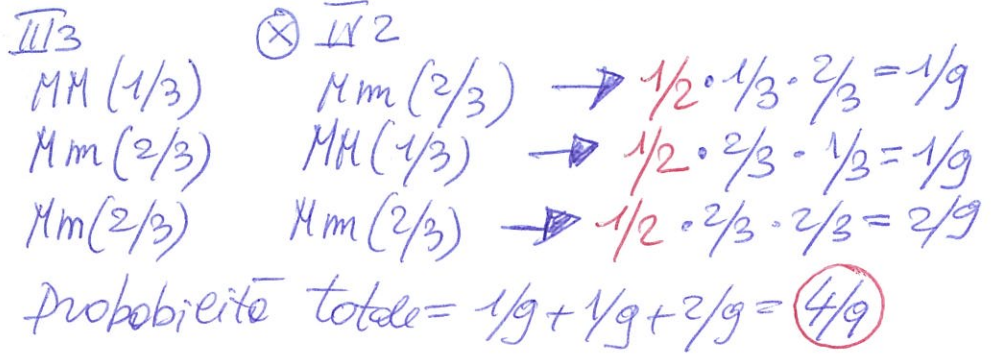 III3 ⊗ IV2
MM (1/3) Mm (2/3) → 1/2 · 1/3 · 2/3 = 1/9
Mm (2/3) MM (1/3) → 1/2 · 2/3 · 1/3 = 1/9
Mm (2/3) Mm (2/3) → 1/2 · 2/3 · 2/3 = 2/9
probabilità totale = 1/9 + 1/9 + 2/9 = 4/9